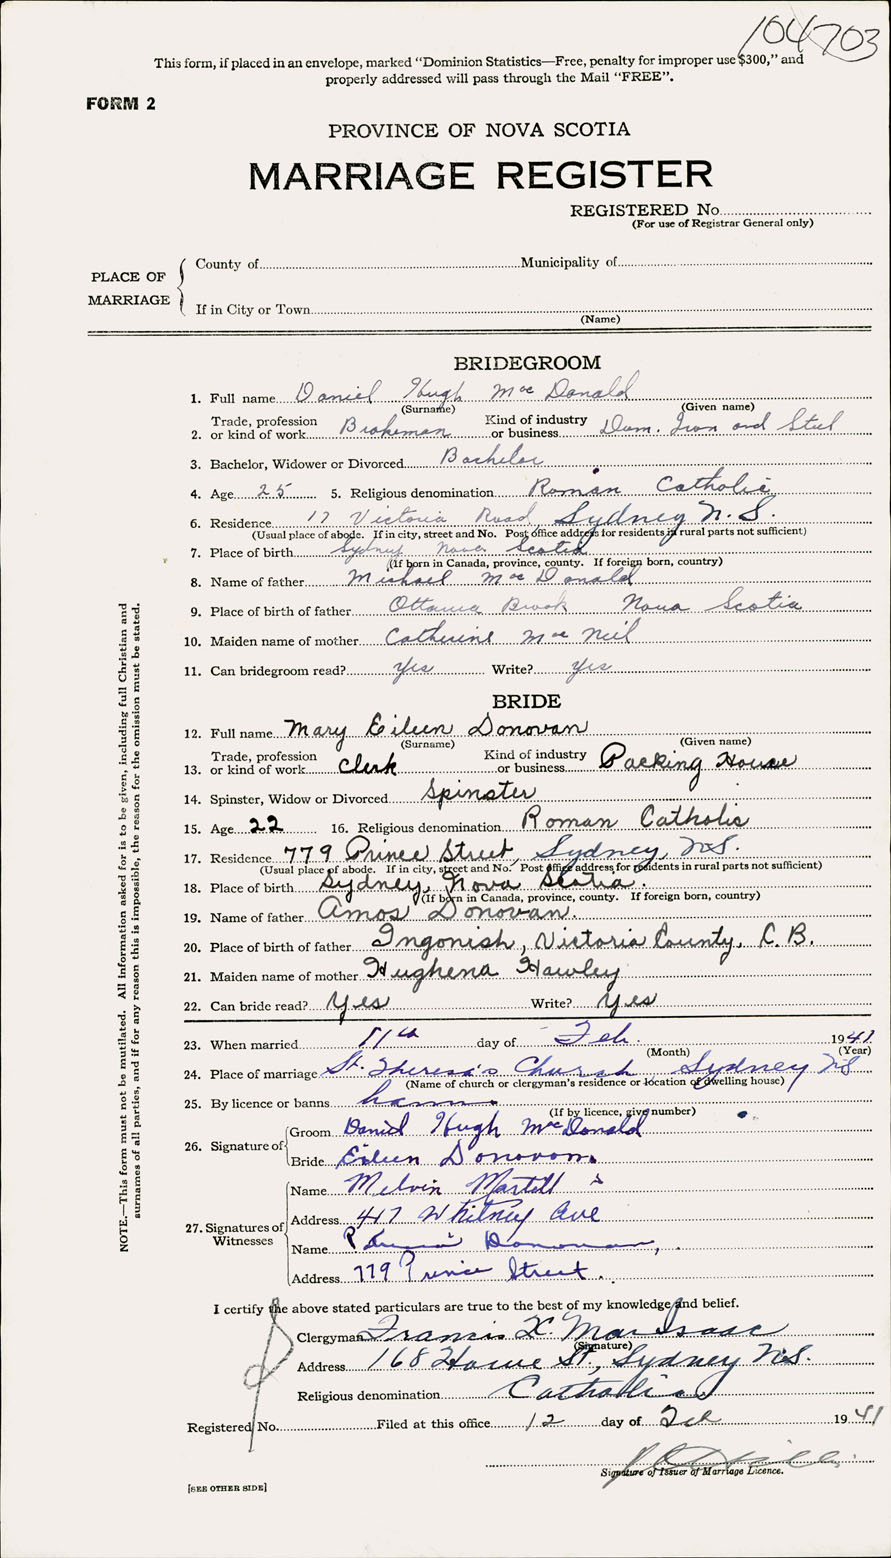 104703
This form, if placed in an envelope, marked “Dominion Statistics—Free, penalty for improper use $300,” and
properly addressed will pass through the Mail “FREE”.
FORM 2
PROVINCE OF NOVA SCOTIA
MARRIAGE REGISTER
REGISTERED No.
(For use of Registrar General only)
PLACE OF MARRIAGE
County of Municipality of
If in City or Town
(Name)
BRIDEGROOM
1. Full name Daniel Hugh MacDonald
(Surname) (Given name)
2. Trade, profession or kind of work Brakeman Kind of industry or business Dom. Iron and Steel
3. Bachelor, Widower or Divorced Bachelor
4. Age 25 5. Religious denomination Roman Catholic
6. Residence 17 Victoria Road Sydney N.S.
(Usual place of abode. If in city, street and No. Post office address for residents in rural parts not sufficient)
7. Place of birth Sydney Nova Scotia
(If born in Canada, province, county. If foreign born, country)
8. Name of father Michael MacDonald
9. Place of birth of father Ottawa Brook Nova Scotia
10. Maiden name of mother Catherine MacNeil
11. Can bridegroom read? yes Write? yes
BRIDE
12. Full name Mary Eileen Donovan
(Surname) (Given name)
13. Trade, profession or kind of work Clerk Kind of industry or business Packing House
14. Spinster, Widow or Divorced Spinster
15. Age 22 16. Religious denomination Roman Catholic
17. Residence 779 Prince Street, Sydney, N.S.
(Usual place of abode. If in city, street and No. Post office address for residents in rural parts not sufficient)
18. Place of birth Sydney, Nova Scotia.
(If born in Canada, province, county. If foreign born, country)
19. Name of father Amos Donovan.
20. Place of birth of father Ingonish, Victoria County, C.B.
21. Maiden name of mother Hughena Hawley
22. Can bride read? Yes Write? Yes
23. When married 11th day of Feb. 1941
(Month) (Year)
24. Place of marriage St. Theresa's Church, Sydney NS
(Name of church or clergyman's residence or location of dwelling house)
25. By licence or banns banns
(If by licence, give number)
26. Signature of
Groom Daniel Hugh MacDonald
Bride Eileen Donovan
27. Signatures of Witnesses
Name Melvin Martell
Address 417 Whitney Ave
Name Donovan,
Address 779 Prince Street.
I certify the above stated particulars are true to the best of my knowledge and belief.
Clergyman Francis X. MacIsaac
(Signature)
Address 168 Howe St, Sydney N.S.
Religious denomination Catholic
Registered No. Filed at this office 12 day of Feb 1941
Signature of Issuer of Marriage Licence.
[SEE OTHER SIDE]
NOTE.—This form must not be mutilated. All Information asked for is to be given, including full Christian and
surnames of all parties, and if for any reason this is impossible, the reason for the omission must be stated.